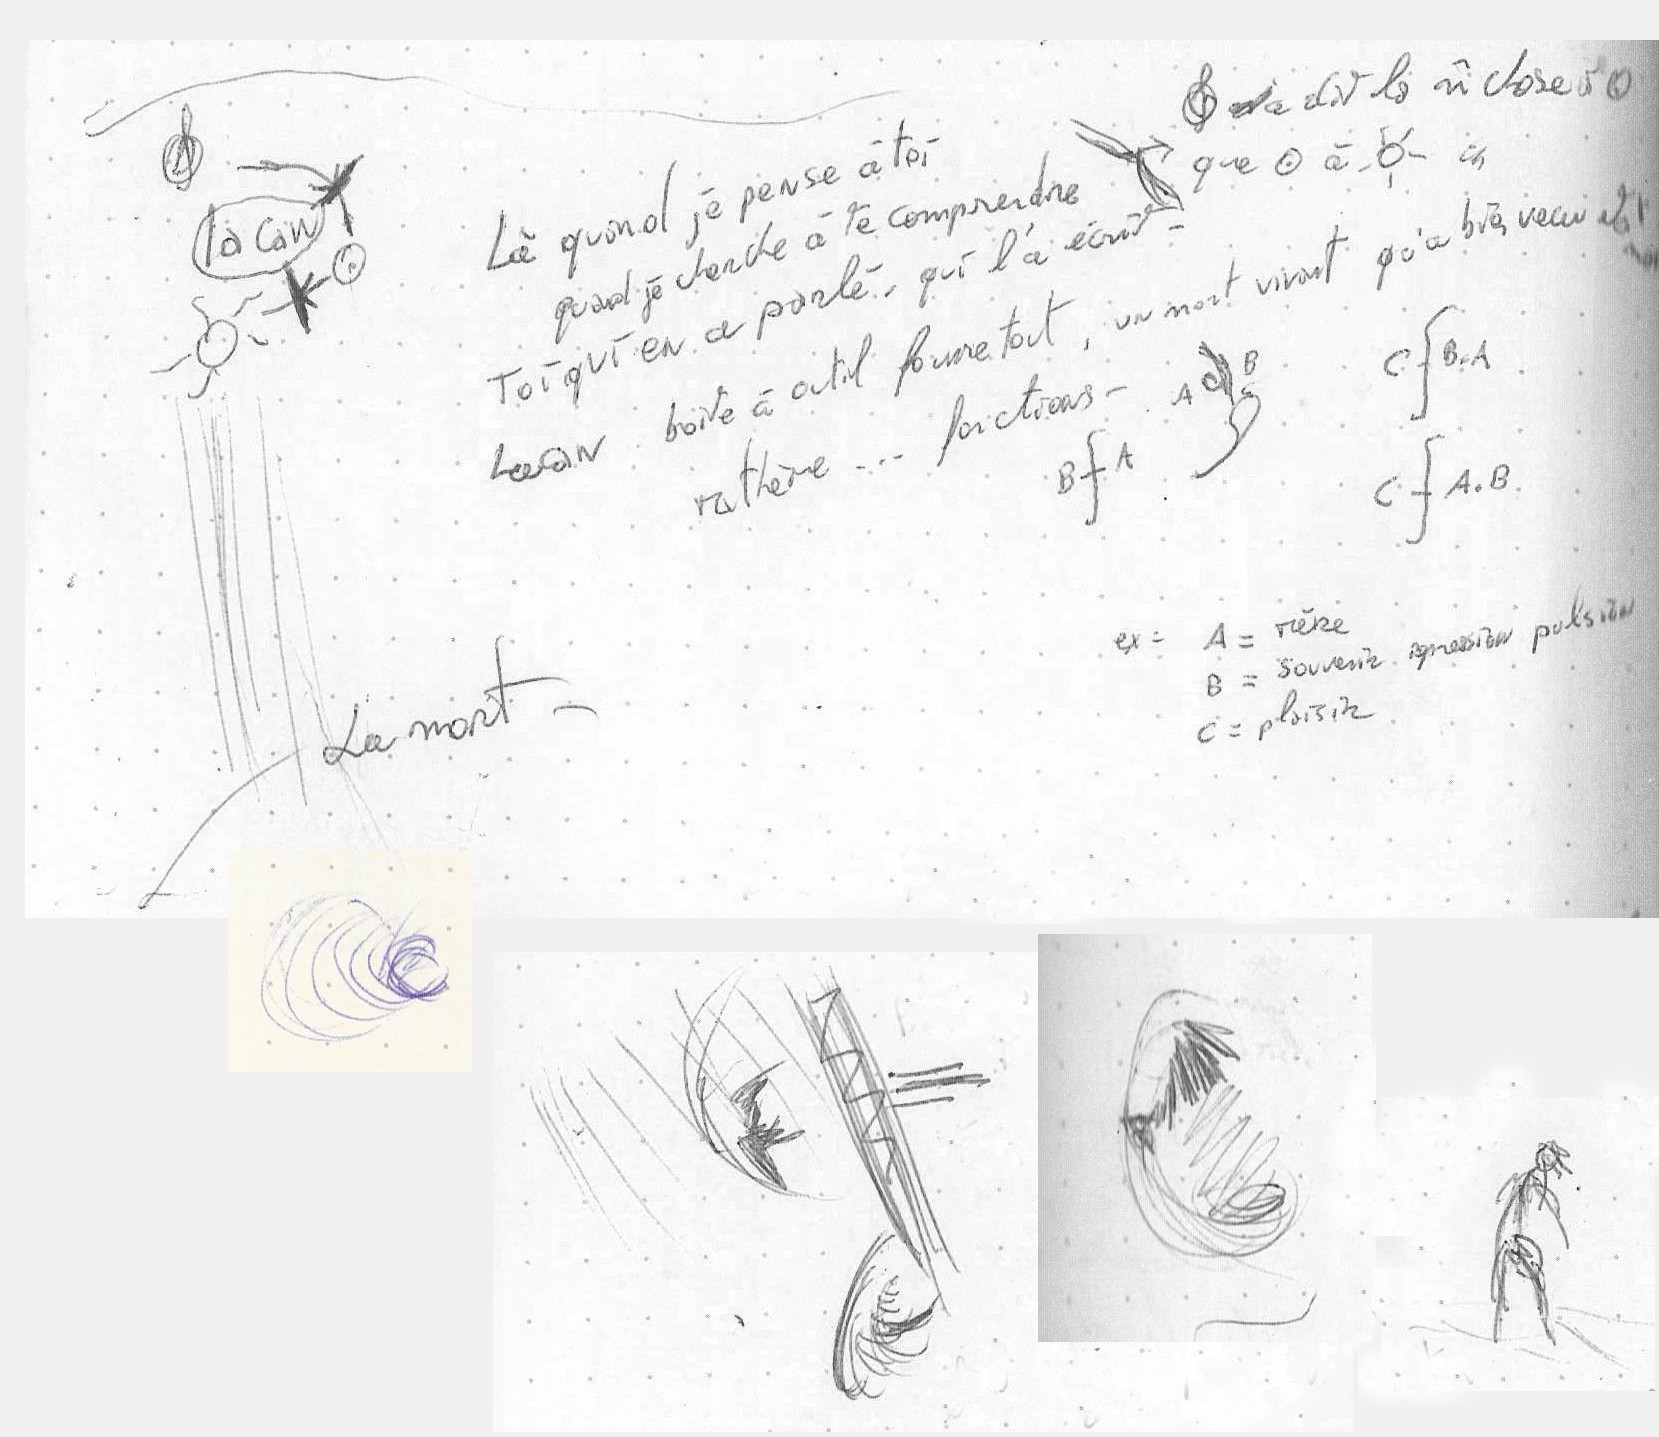 a dit la m̂ chose à
que ⊙ à
lacan
Là quand je pense à toi
quand je cherche à te comprendre
Toi qui en a parlé - qui l'a écrit -
Lacan boite à outil fourre tout, un mort vivant qu'a bien vecu
mathème --- fonctions -
A B C
B { A
C { B.A
C { A.B
ex = A = mère
B = souvenir repression pulsion
C = plaisir
La mort -